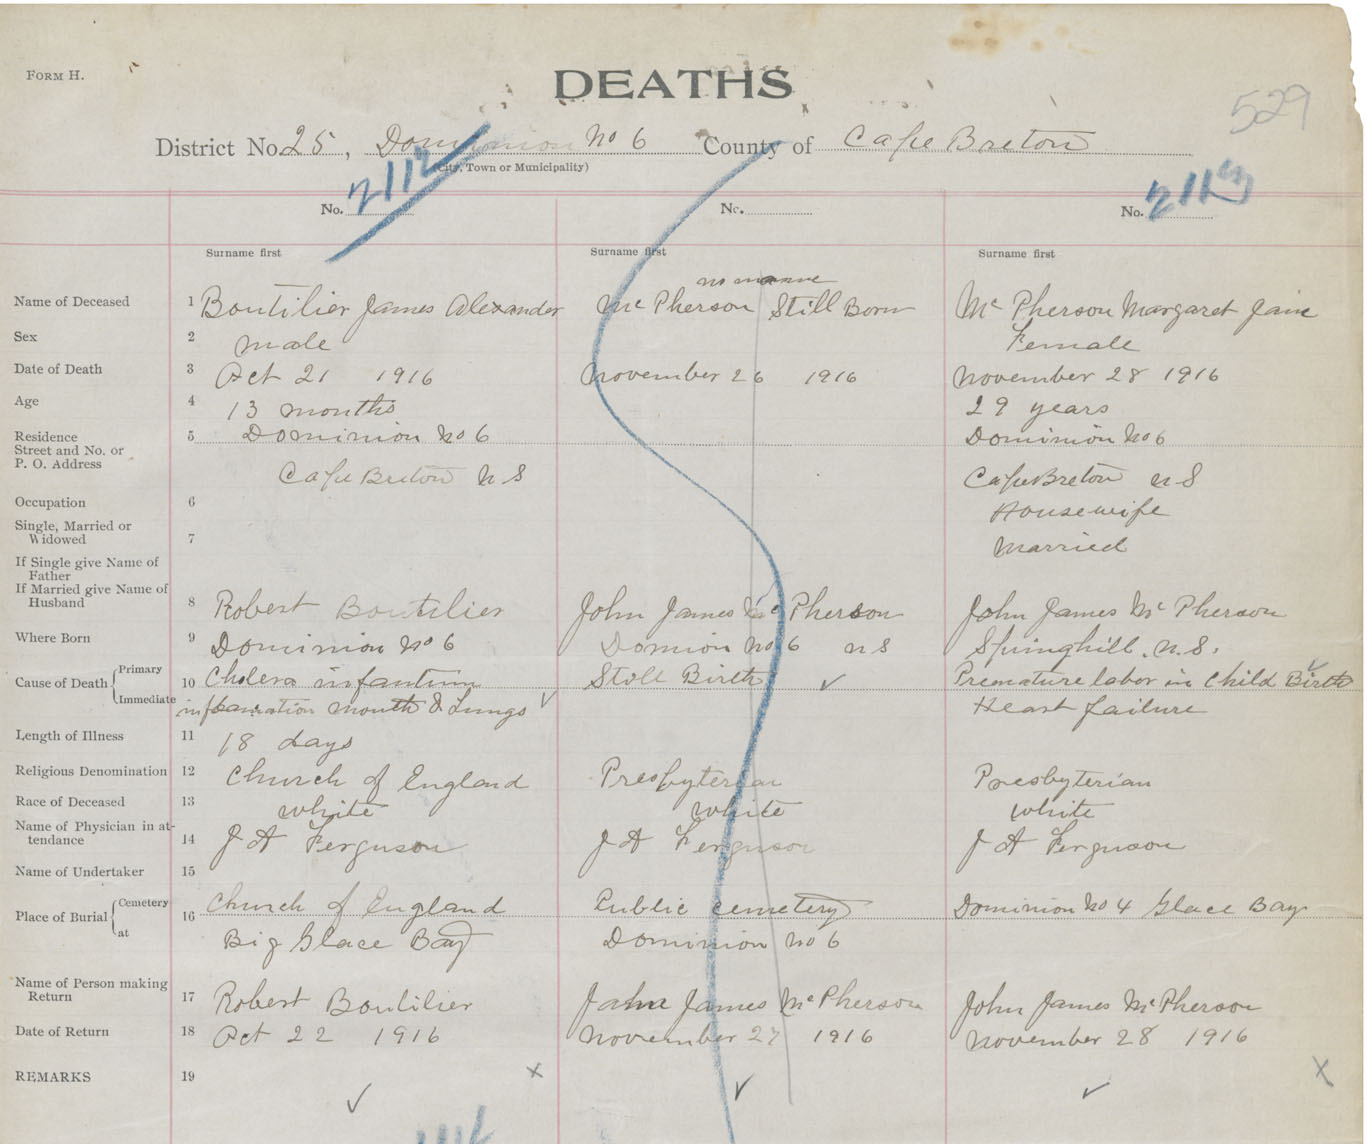 FORM H.
DEATHS
529
District No. 25, Dominion No 6 County of Cape Breton
(City, Town or Municipality)
No. 2112 No. No. 2113
Surname first Surname first Surname first
no name
Name of Deceased 1 Boutilier James Alexander McPherson Still Born McPherson Margaret Jane
Sex 2 male Female
Date of Death 3 Oct 21 1916 November 26 1916 November 28 1916
Age 4 13 months 29 years
Residence 5 Dominion No 6 Dominion No 6
Street and No. or
P. O. Address Cape Breton N S Cape Breton N S
Occupation 6 Housewife
Single, Married or
Widowed 7 Married
If Single give Name of
Father
If Married give Name of
Husband 8 Robert Boutilier John James McPherson John James McPherson
Where Born 9 Dominion No 6 Domion No 6 N S Springhill. N.S.
Cause of Death { Primary 10 Cholera infantum Stoll Birth ✓ Premature labor in Child Birth ✓
Immediate infamation mouth & Lungs ✓ Heart failure
Length of Illness 11 18 days
Religious Denomination 12 Church of England Presbyterian Presbyterian
Race of Deceased 13 white white white
Name of Physician in at-
tendance 14 J A Ferguson J A Ferguson J A Ferguson
Name of Undertaker 15
Place of Burial { Cemetery 16 Church of England Public cemetery Dominion No 4 Glace Bay
at Big Glace Bay Dominion No 6
Name of Person making
Return 17 Robert Boutilier John James McPherson John James McPherson
Date of Return 18 Oct 22 1916 November 27 1916 November 28 1916
REMARKS 19 ✓ x ✓ ✓ x